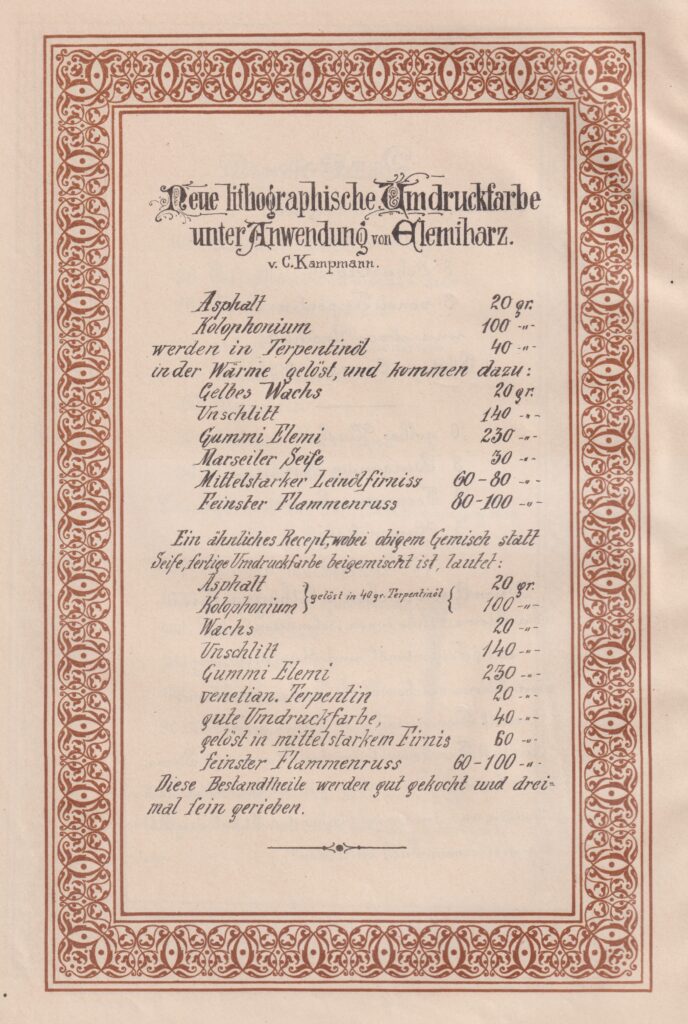 Neue lithographische Umdruckfarbe
unter Anwendung von Elemiharz.
v. C. Kampmann.
Asphalt 20 gr.
Kolophonium 100 -„-
werden in Terpentinöl 40 -„-
in der Wärme gelöst, und kommen dazu:
Gelbes Wachs 20 gr.
Unschlitt 140 -„-
Gummi Elemi 230 -„-
Marseiler Seife 30 -„-
Mittelstarker Leinölfirniss 60-80 -„-
Feinster Flammenruss 80-100 -„-
Ein ähnliches Recept, wobei obigem Gemisch statt
Seife, fertige Umdruckfarbe beigemischt ist, lautet:
Asphalt 20 gr.
Kolophonium } gelöst in 40 gr. Terpentinöl { 100 -„-
Wachs 20 -„-
Unschlitt 140 -„-
Gummi Elemi 230 -„-
venetian. Terpentin 20 -„-
gute Umdruckfarbe, 40 -„-
gelöst in mittelstarkem Firnis 60 -„-
feinster Flammenruss 60-100 -„-
Diese Bestandtheile werden gut gekocht und drei=
mal fein gerieben.